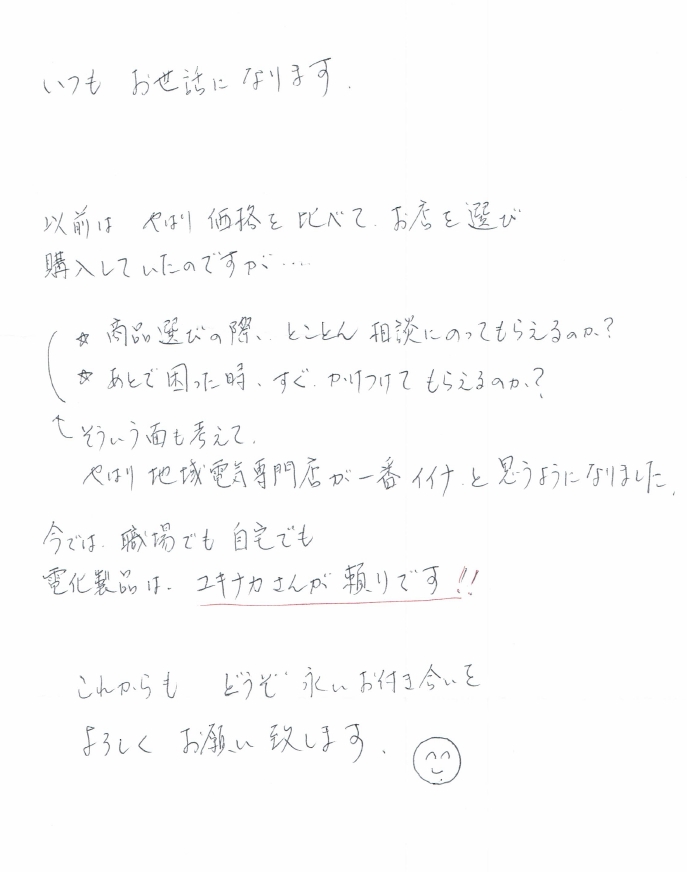 いつも お世話になります.
以前は やはり 価格を 比べて、お店を 選び
購入していたのですが…‥
☆ 商品選びの際、とことん 相談にのってもらえるのか?
☆ あとで 困った時、すぐ かけつけて もらえるのか?
そういう面も 考えて、
やはり 地域電気専門店が 一番 イイナ と 思うようになりました。
今では、職場でも 自宅でも
電化製品は、ユキナカさんが 頼りです!!
これからも どうぞ 永い お付き合いを
よろしく お願い 致します.